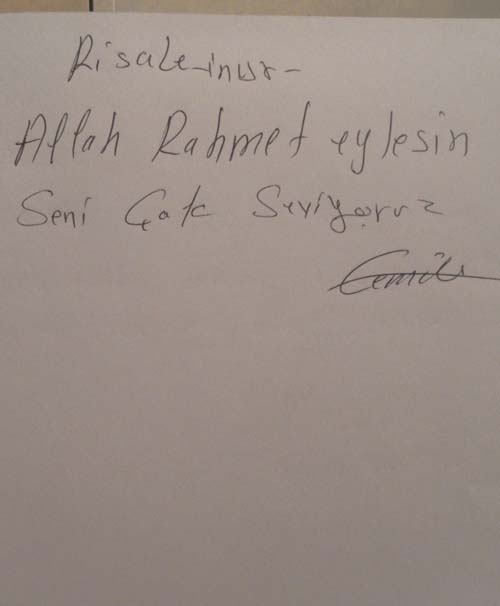 Risale-inur-
Allah Rahmet eylesin
Seni Çok Seviyoruz